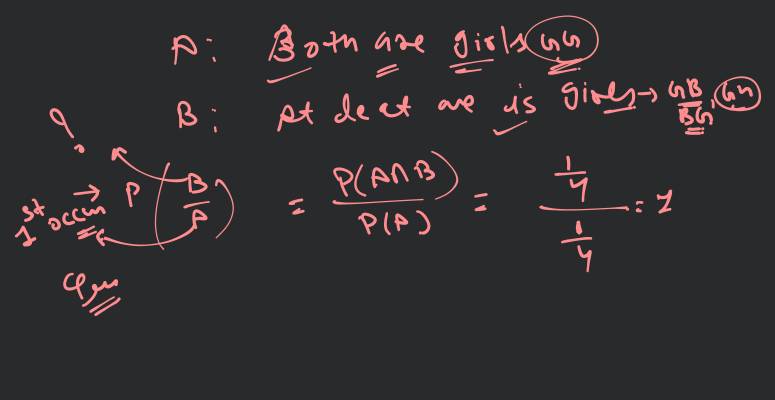 A: Both are girls GG
B: At least one is girls → GB, GG
BG
?
1st occur → P(B/A) = P(A∩B)/P(A) = (1/4)/(1/4) = 1